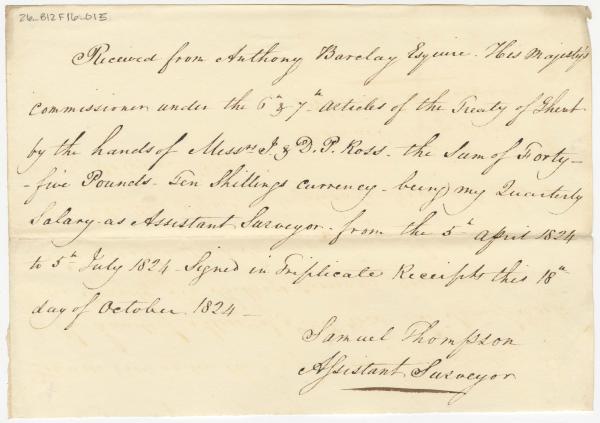 26-B12F16-01E
Received from Anthony Barclay Esquire. His Majesty's
commissioner under the 6th & 7th articles of the Treaty of Ghent
by the hands of Messrs J. & D. P. Ross - the Sum of Forty-
-five Pounds - Ten Shillings currency - being my Quarterly
Salary - as Assistant Surveyor - from the 5th april 1824
to 5th July 1824 - Signed in Triplicate Receipts this 18th
day of October 1824 -
Samuel Thompson
Assistant Surveyor